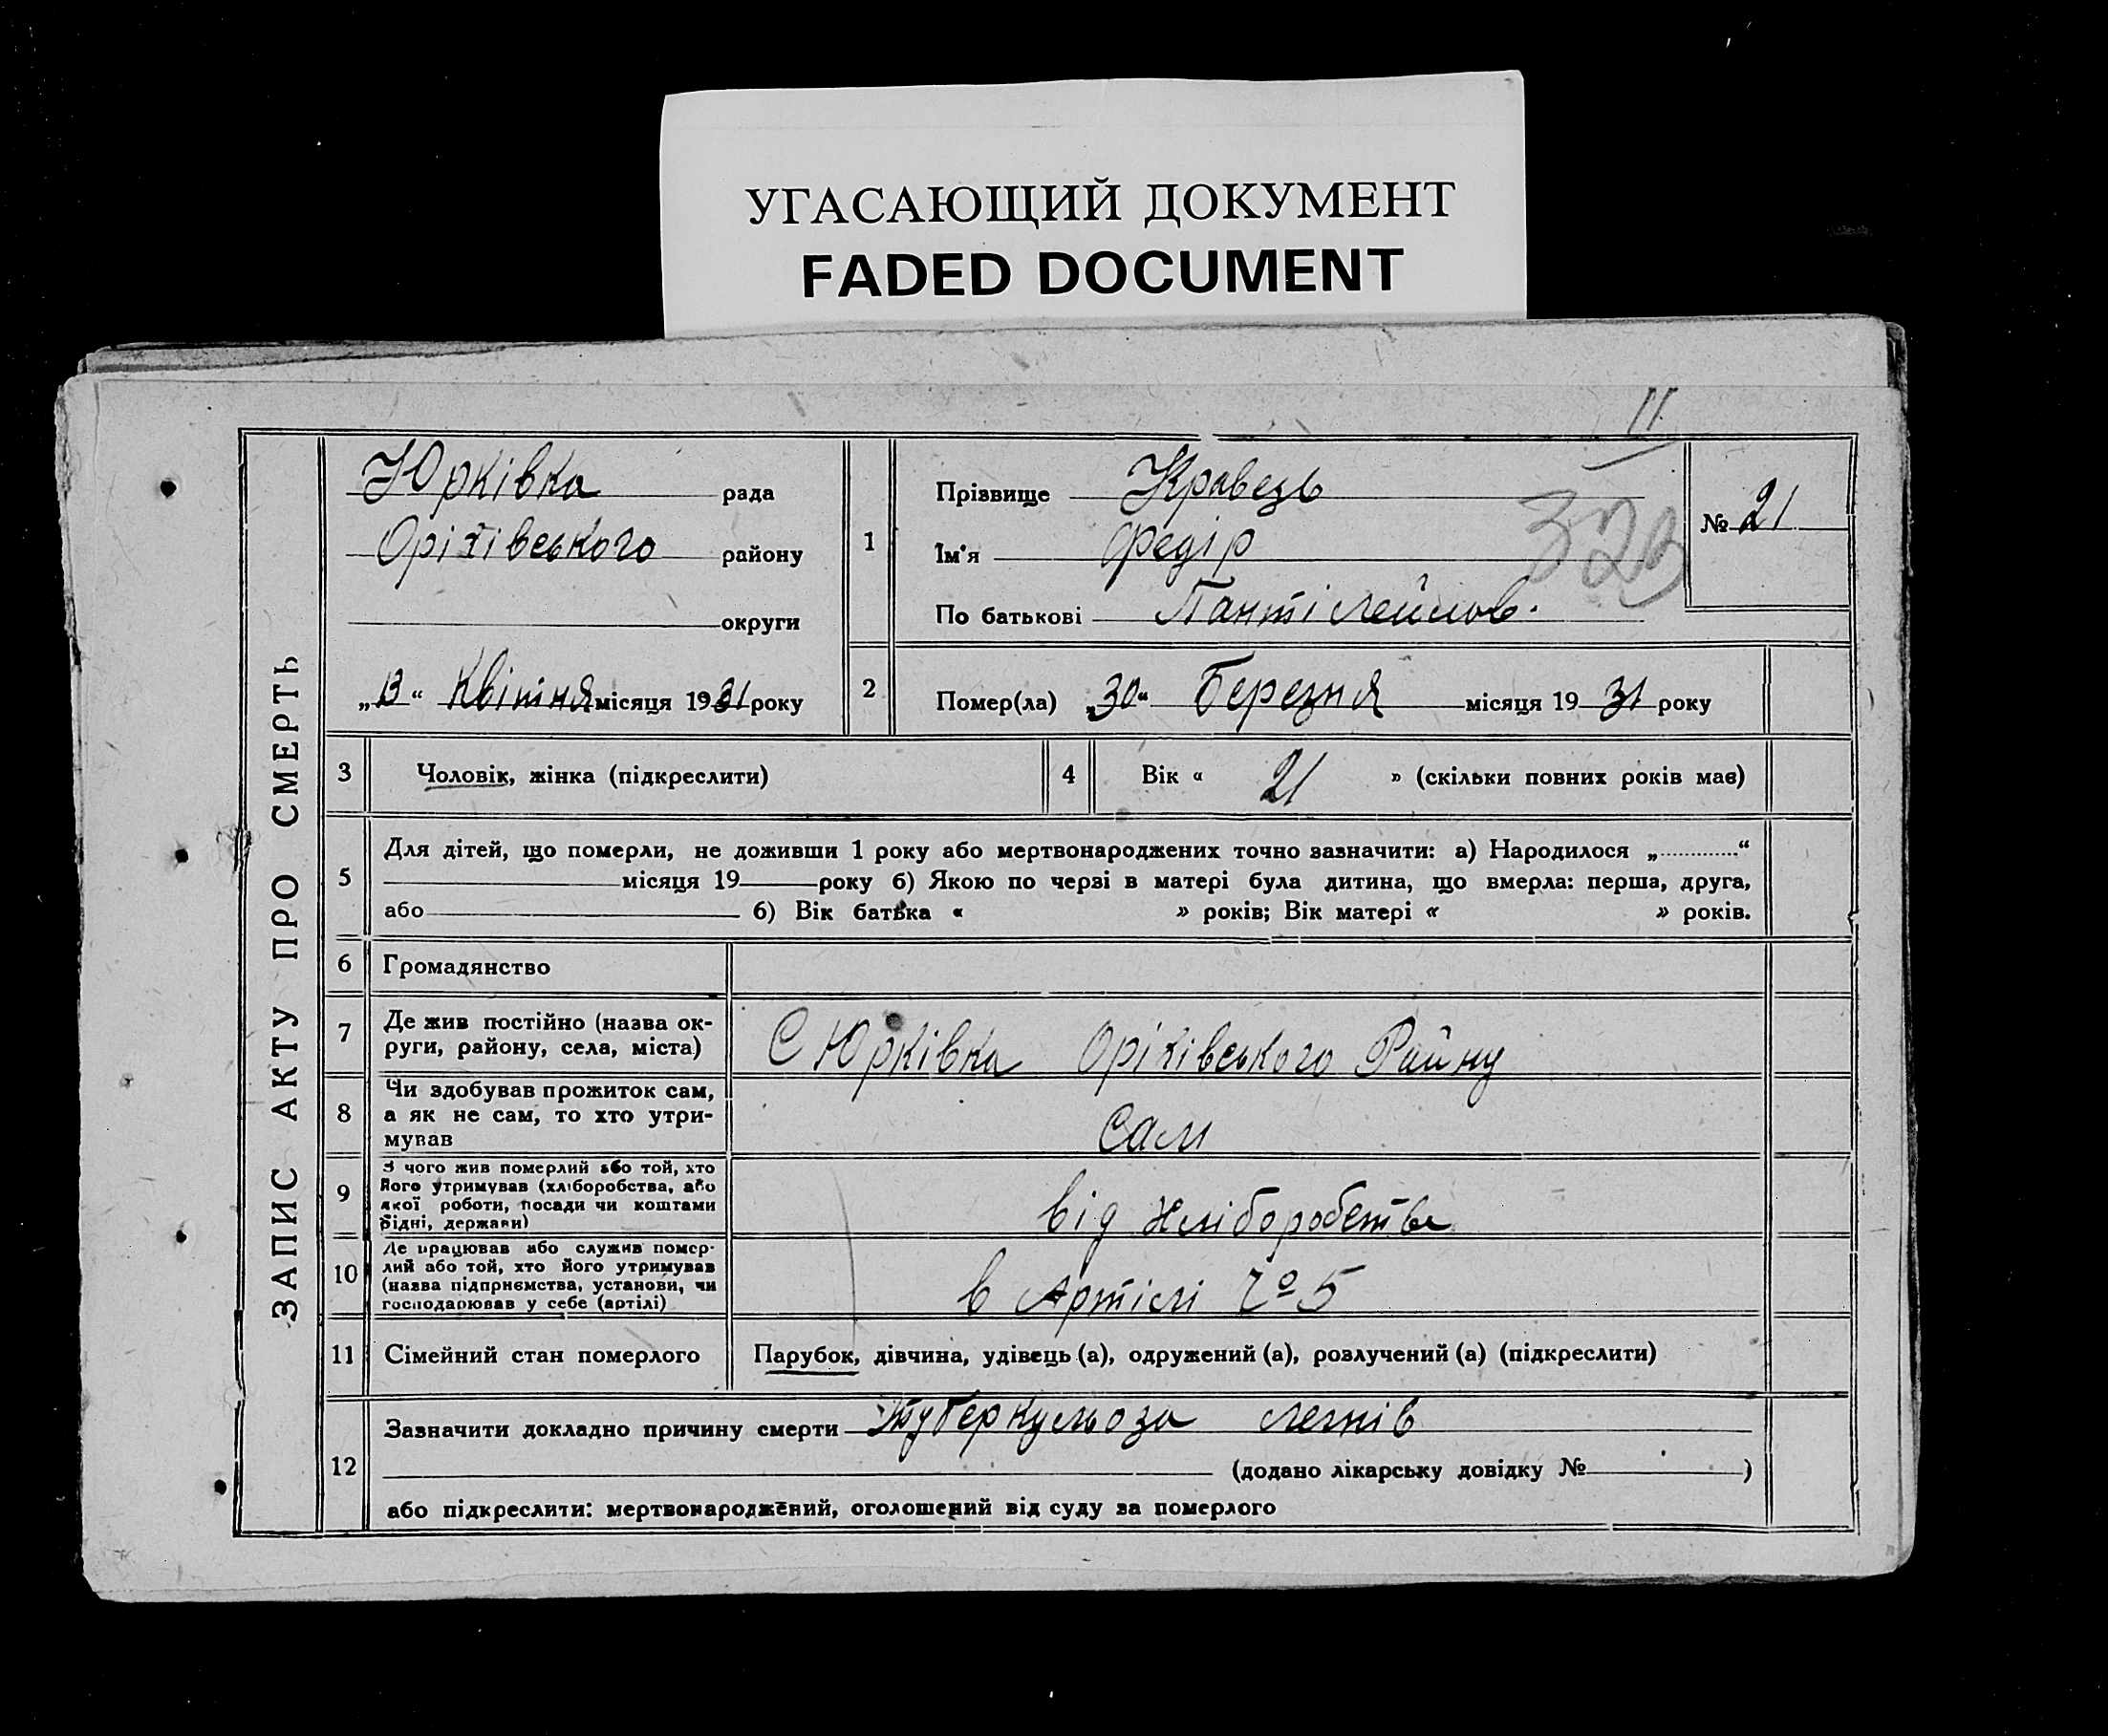 УГАСАЮЩИЙ ДОКУМЕНТ
FADED DOCUMENT
II
ЗАПИС АКТУ ПРО СМЕРТЬ
Юрківка рада
Оріхівського району
округи
„13“ Квітня місяця 1931 року
1
Прізвище Кравець
Ім'я Федір
По батькові Пантілеймов.
№ 21
2 Помер(ла) „30“ Березня місяця 1931 року
3 Чоловік, жінка (підкреслити)
4 Вік « 21 » (скільки повних років має)
5
Для дітей, що померли, не доживши 1 року або мертвонароджених точно зазначити: а) Народилося „............“
місяця 19 року б) Якою по черві в матері була дитина, що вмерла: перша, друга,
або б) Вік батька « » років; Вік матері « » років.
6 Громадянство
7
Де жив постійно (назва ок-
руги, району, села, міста)
С Юрківка Оріхівського Райну
8
Чи здобував прожиток сам,
а як не сам, то хто утри-
мував
Сам
9
З чого жив померлий або той, хто
його утримував (хліборобства, або
якої роботи, посади чи коштами
рідні, держави)
від Хліборобства
10
Де працював або служив помер-
лий або той, хто його утримував
(назва підприємства, установи, чи
господарював у себе (артілі)
в Артілі № 5
11 Сімейний стан померлого
Парубок, дівчина, удівець (а), одружений (а), розлучений (а) (підкреслити)
12
Зазначити докладно причину смерти Туберкульоза легнів
(додано лікарську довідку № )
або підкреслити: мертвонароджений, оголошений від суду за померлого